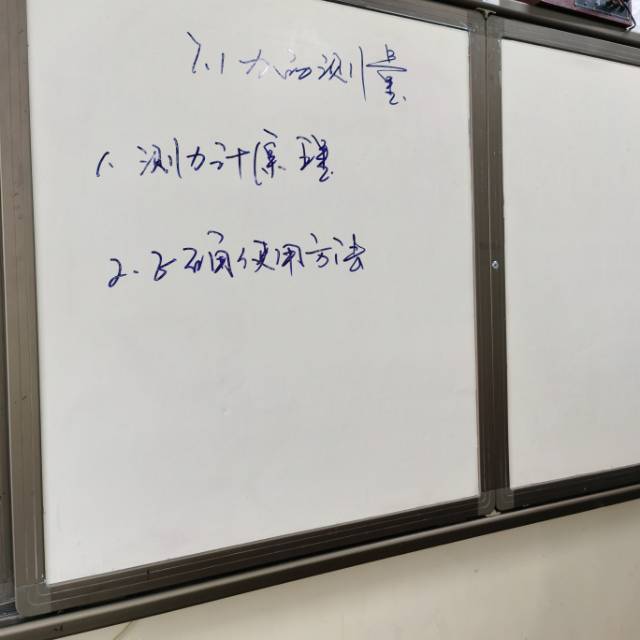 7.1 力的测量
1、测力计原理
2、正确使用方法